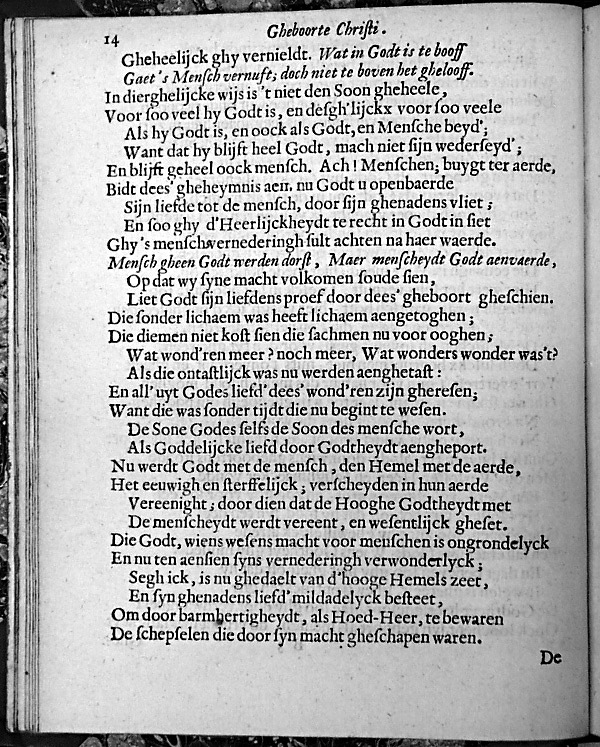 14
Gheboorte Chriſti.
Gheheelijck ghy vernieldt. Wat in Godt is te booff
Gaet's Menſch vernuft; doch niet te boven het ghelooff.
In dierghelijcke wijs is 't niet den Soon gheheele,
Voor ſoo veel hy Godt is, en deſgh'lijckx voor ſoo veele
Als hy Godt is, en oock als Godt, en Menſche beyd';
Want dat hy blijft heel Godt, mach niet ſijn wederſeyd';
En blijft geheel oock menſch. Ach! Menſchen, buygt ter aerde,
Bidt dees' gheheymnis aen. nu Godt u openbaerde
Sijn liefde tot de menſch, door ſijn ghenadens vliet;
En ſoo ghy d'Heerlijckheydt te recht in Godt in ſiet
Ghy's menſchvernederingh ſult achten na haer waerde.
Menſch gheen Godt werden dorſt, Maer menſcheydt Godt aenvaerde,
Op dat wy ſyne macht volkomen ſoude ſien,
Liet Godt ſijn liefdens proef door dees' gheboort gheſchien.
Die ſonder lichaem was heeft lichaem aengetoghen;
Die diemen niet koſt ſien die ſachmen nu voor ooghen;
Wat wond'ren meer? noch meer, Wat wonders wonder was't?
Als die ontaſtlijck was nu werden aenghetaſt:
En all' uyt Godes liefd' dees' wond'ren zijn ghereſen;
Want die was ſonder tijdt die nu begint te weſen.
De Sone Godes ſelfs de Soon des menſche wort,
Als Goddelijcke liefd door Godtheydt aengheport.
Nu werdt Godt met de menſch, den Hemel met de aerde,
Het eeuwigh en ſterffelijck; verſcheyden in hun aerde
Vereenight; door dien dat de Hooghe Godtheydt met
De menſcheydt werdt vereent, en weſentlijck gheſet.
Die Godt, wiens weſens macht voor menſchen is ongrondelyck
En nu ten aenſien ſyns vernederingh verwonderlyck;
Segh ick, is nu ghedaelt van d'hooge Hemels zeet,
En ſyn ghenadens liefd' mildadelyck beſteet,
Om door barmhertigheydt, als Hoed-Heer, te bewaren
De ſchepſelen die door ſyn macht gheſchapen waren.
De